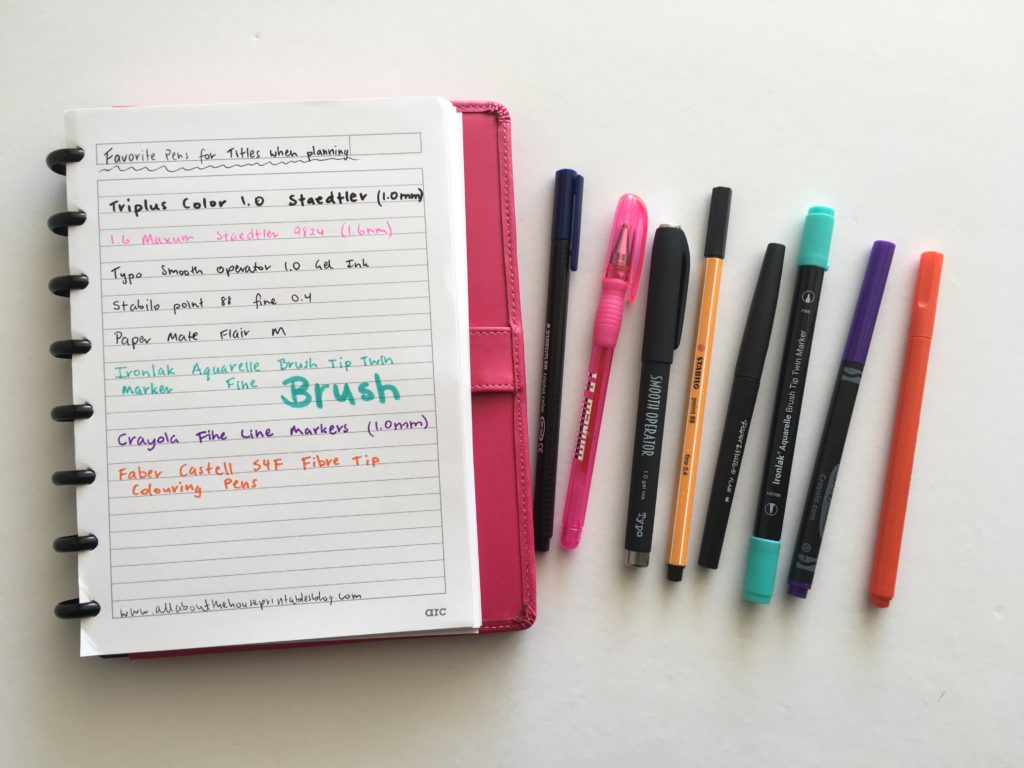 Favorite Pens for Titles when planning
Triplus Color 1.0 Staedtler (1.0mm)
1.6 Maxum Staedtler 9824 (1.6mm)
Typo Smooth Operator 1.0 Gel Ink
Stabilo point 88 fine 0.4
Paper Mate Flair M
Ironlak Aquarelle Brush Tip Twin
Marker Fine Brush
Crayola Fine Line Markers (1.0mm)
Faber Castell S4F Fibre Tip
Colouring Pens
www.allaboutthehouseprintablesblog.com
arc
STAEDTLER triplus color
SMOOTH OPERATOR 1.0 gel ink Typo
STABILO point 88 fine 0,4
Paper Mate FLAIR M
Ironlak® Aquarelle Brush Tip Twin Marker
Crayola.com